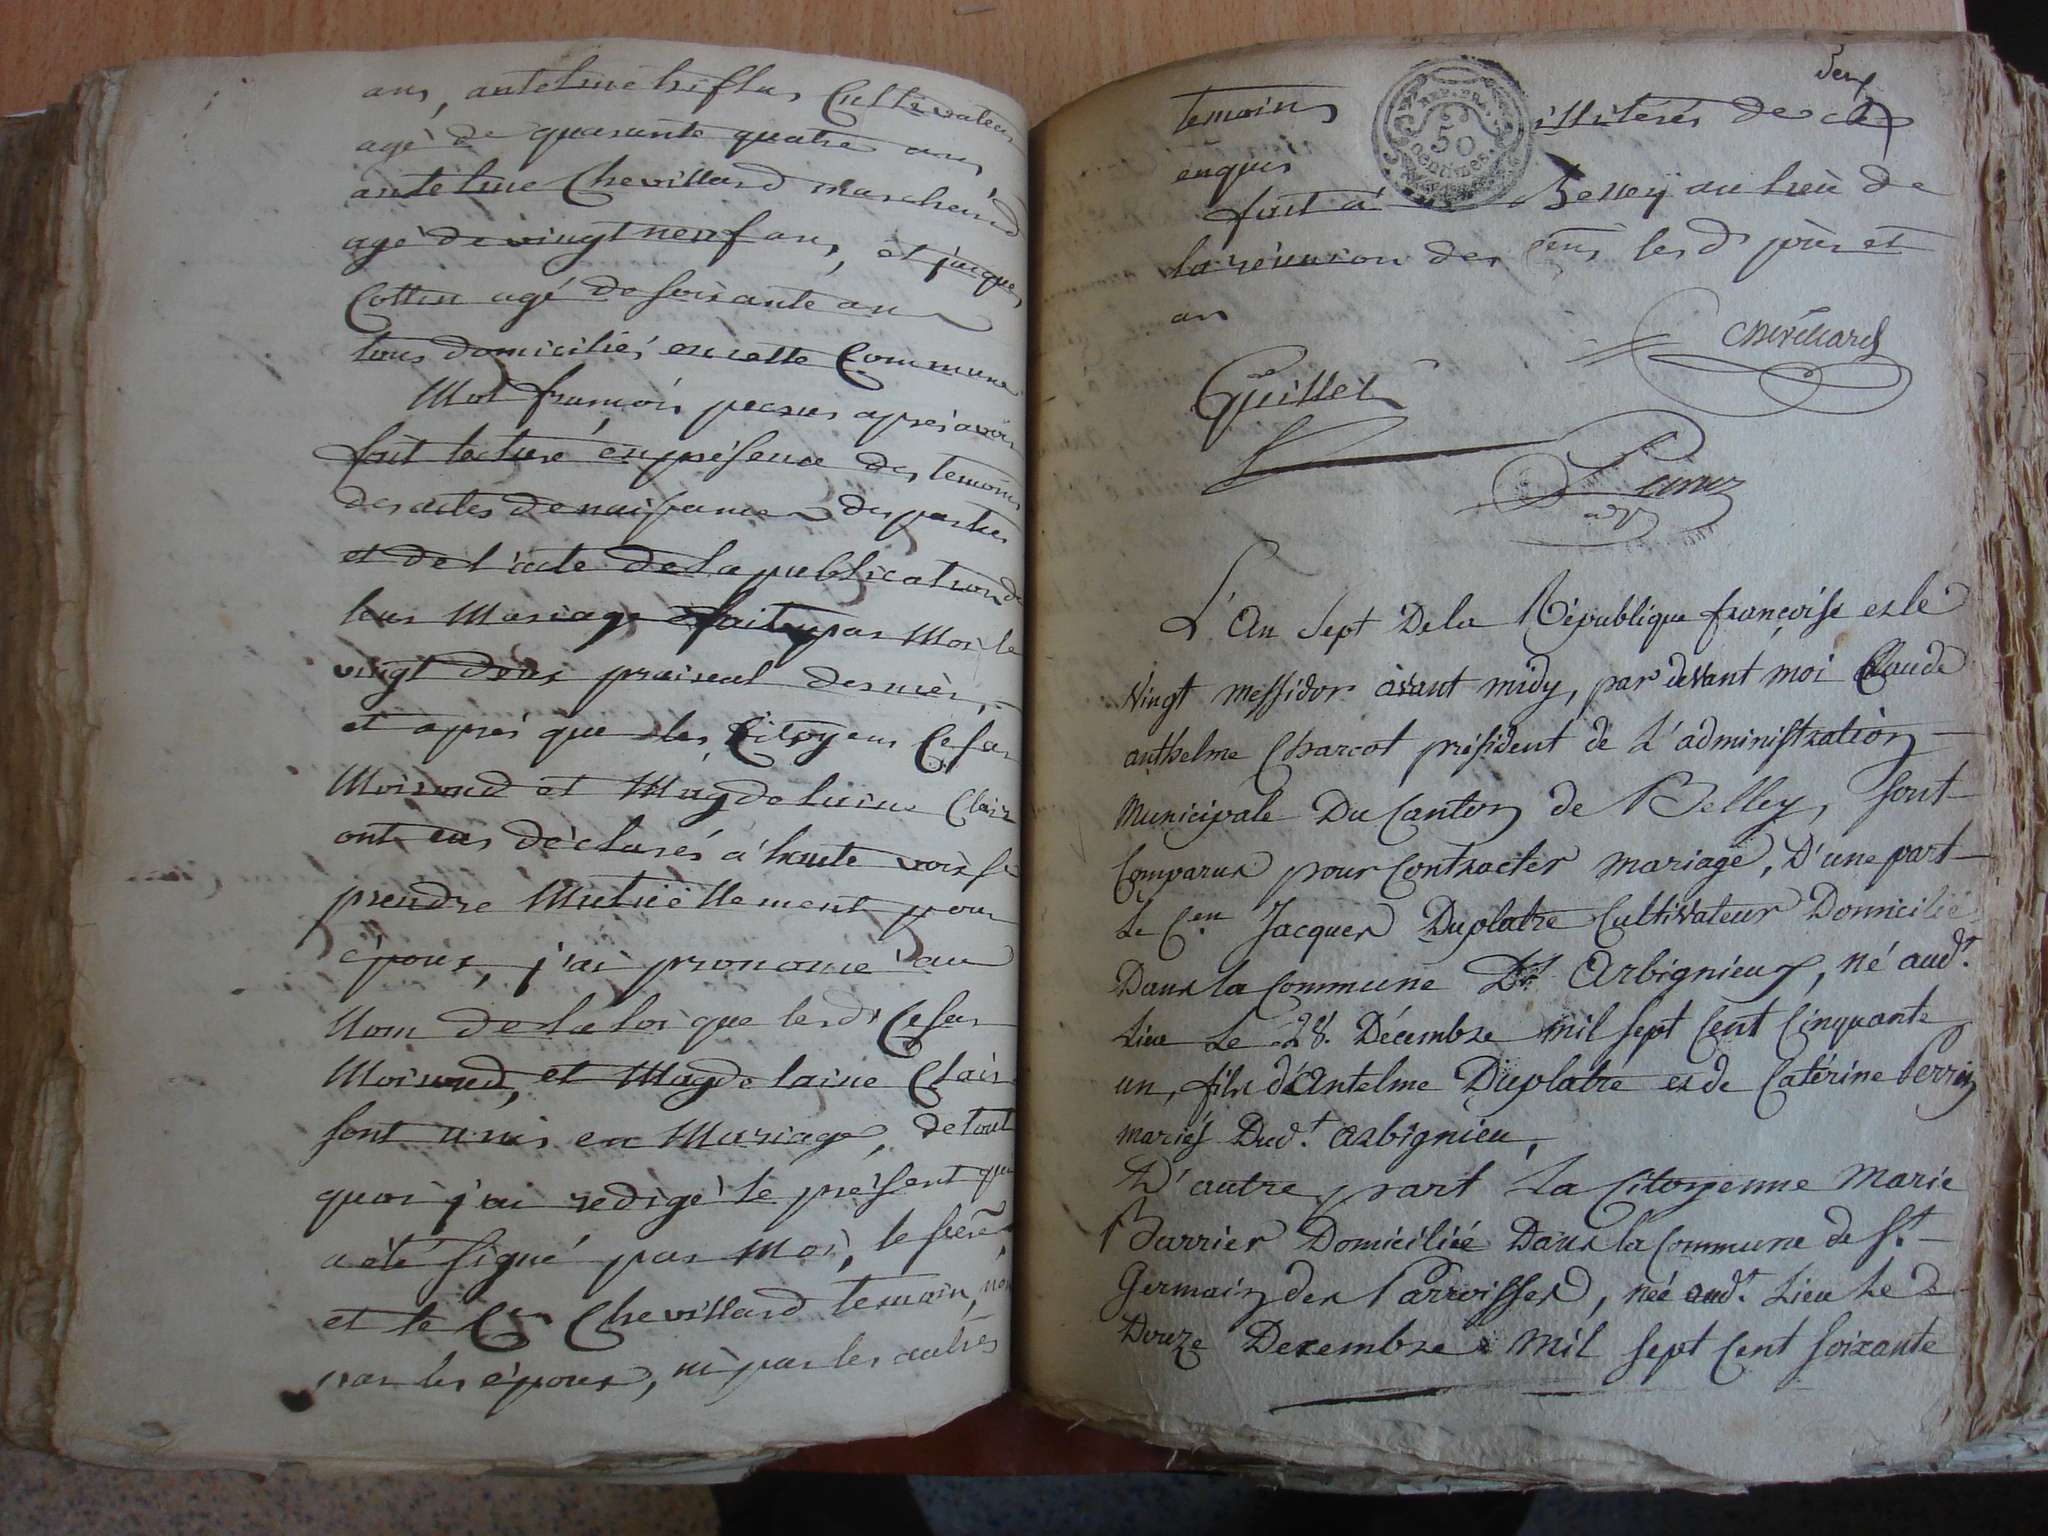 ans, antelme Cultivateur
agé de quarante quatre ans
antelme Chevillard marchand
agé de vingt neuf ans, et jacques
Cottin agé de soixante ans
tous domiciliés en cette Commune
Moi françois après avoir
fait lecture en présence des temoins
des actes de naissance des parties
et de l'acte de la publication de
leur Mariage faite par Moi le
vingt deux praireal dernier,
et après que les Citoyens Cesar
Moiroud et Magdelaine Clair
ont eus déclarés à haute voix se
prendre Mutuellement pour
époux, j'ai prononcé au
Nom de la loi que lesds Cesar
Moiroud, et Magdelaine Clair
sont unis en Mariage, de tout
quoi j'ai redigé le présent qui
a été signé par Moi, le
et le Cn Chevillard temoin, non
par les époux, ni par les autres
temoins illiterés de ce
enquis
REP. FRA.
50
centimes.
fait à Belley au lieu de
la réunion des Cens lesd jour et
an
Chevillard
Guillet
L'An Sept De la République françoise et le
Vingt Messidor avant midy, par devant moi Claude
anthelme Charcot président de L'administration
Municipale Du Canton de Belley, sont
Comparus pour Contracter mariage, D'une part
Le Cen Jacques Duplatre Cultivateur Domicilié
Dans la Commune D' Arbignieux, né audt.
Lieu Le 28. Décembre mil sept Cent Cinquante
un, fils d'Antelme Duplatre et de Catérine Perrin
mariés Dudt. arbignieu,
D'autre part La Citoyenne Marie
Barrier Domiciliée Dans la Commune de St.
Germain des Parroisses, née audt. Lieu Le
Douze Decembre Mil sept Cent soixante